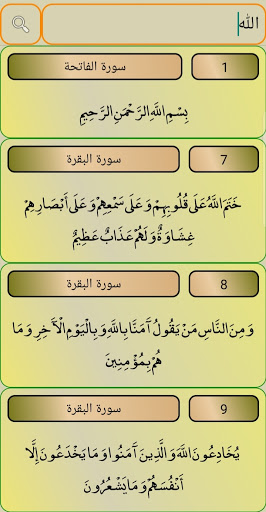 الله
سورة الفاتحة 1
بِسْمِ اللَّهِ الرَّحْمَنِ الرَّحِيمِ
سورة البقرة 7
خَتَمَ اللَّهُ عَلَى قُلُوبِهِمْ وَعَلَى سَمْعِهِمْ وَعَلَى أَبْصَارِهِمْ
غِشَاوَةٌ وَلَهُمْ عَذَابٌ عَظِيمٌ
سورة البقرة 8
وَمِنَ النَّاسِ مَنْ يَقُولُ آمَنَّا بِاللَّهِ وَبِالْيَوْمِ الْآخِرِ وَمَا
هُمْ بِمُؤْمِنِينَ
سورة البقرة 9
يُخَادِعُونَ اللَّهَ وَالَّذِينَ آمَنُوا وَمَا يَخْدَعُونَ إِلَّا
أَنْفُسَهُمْ وَمَا يَشْعُرُونَ